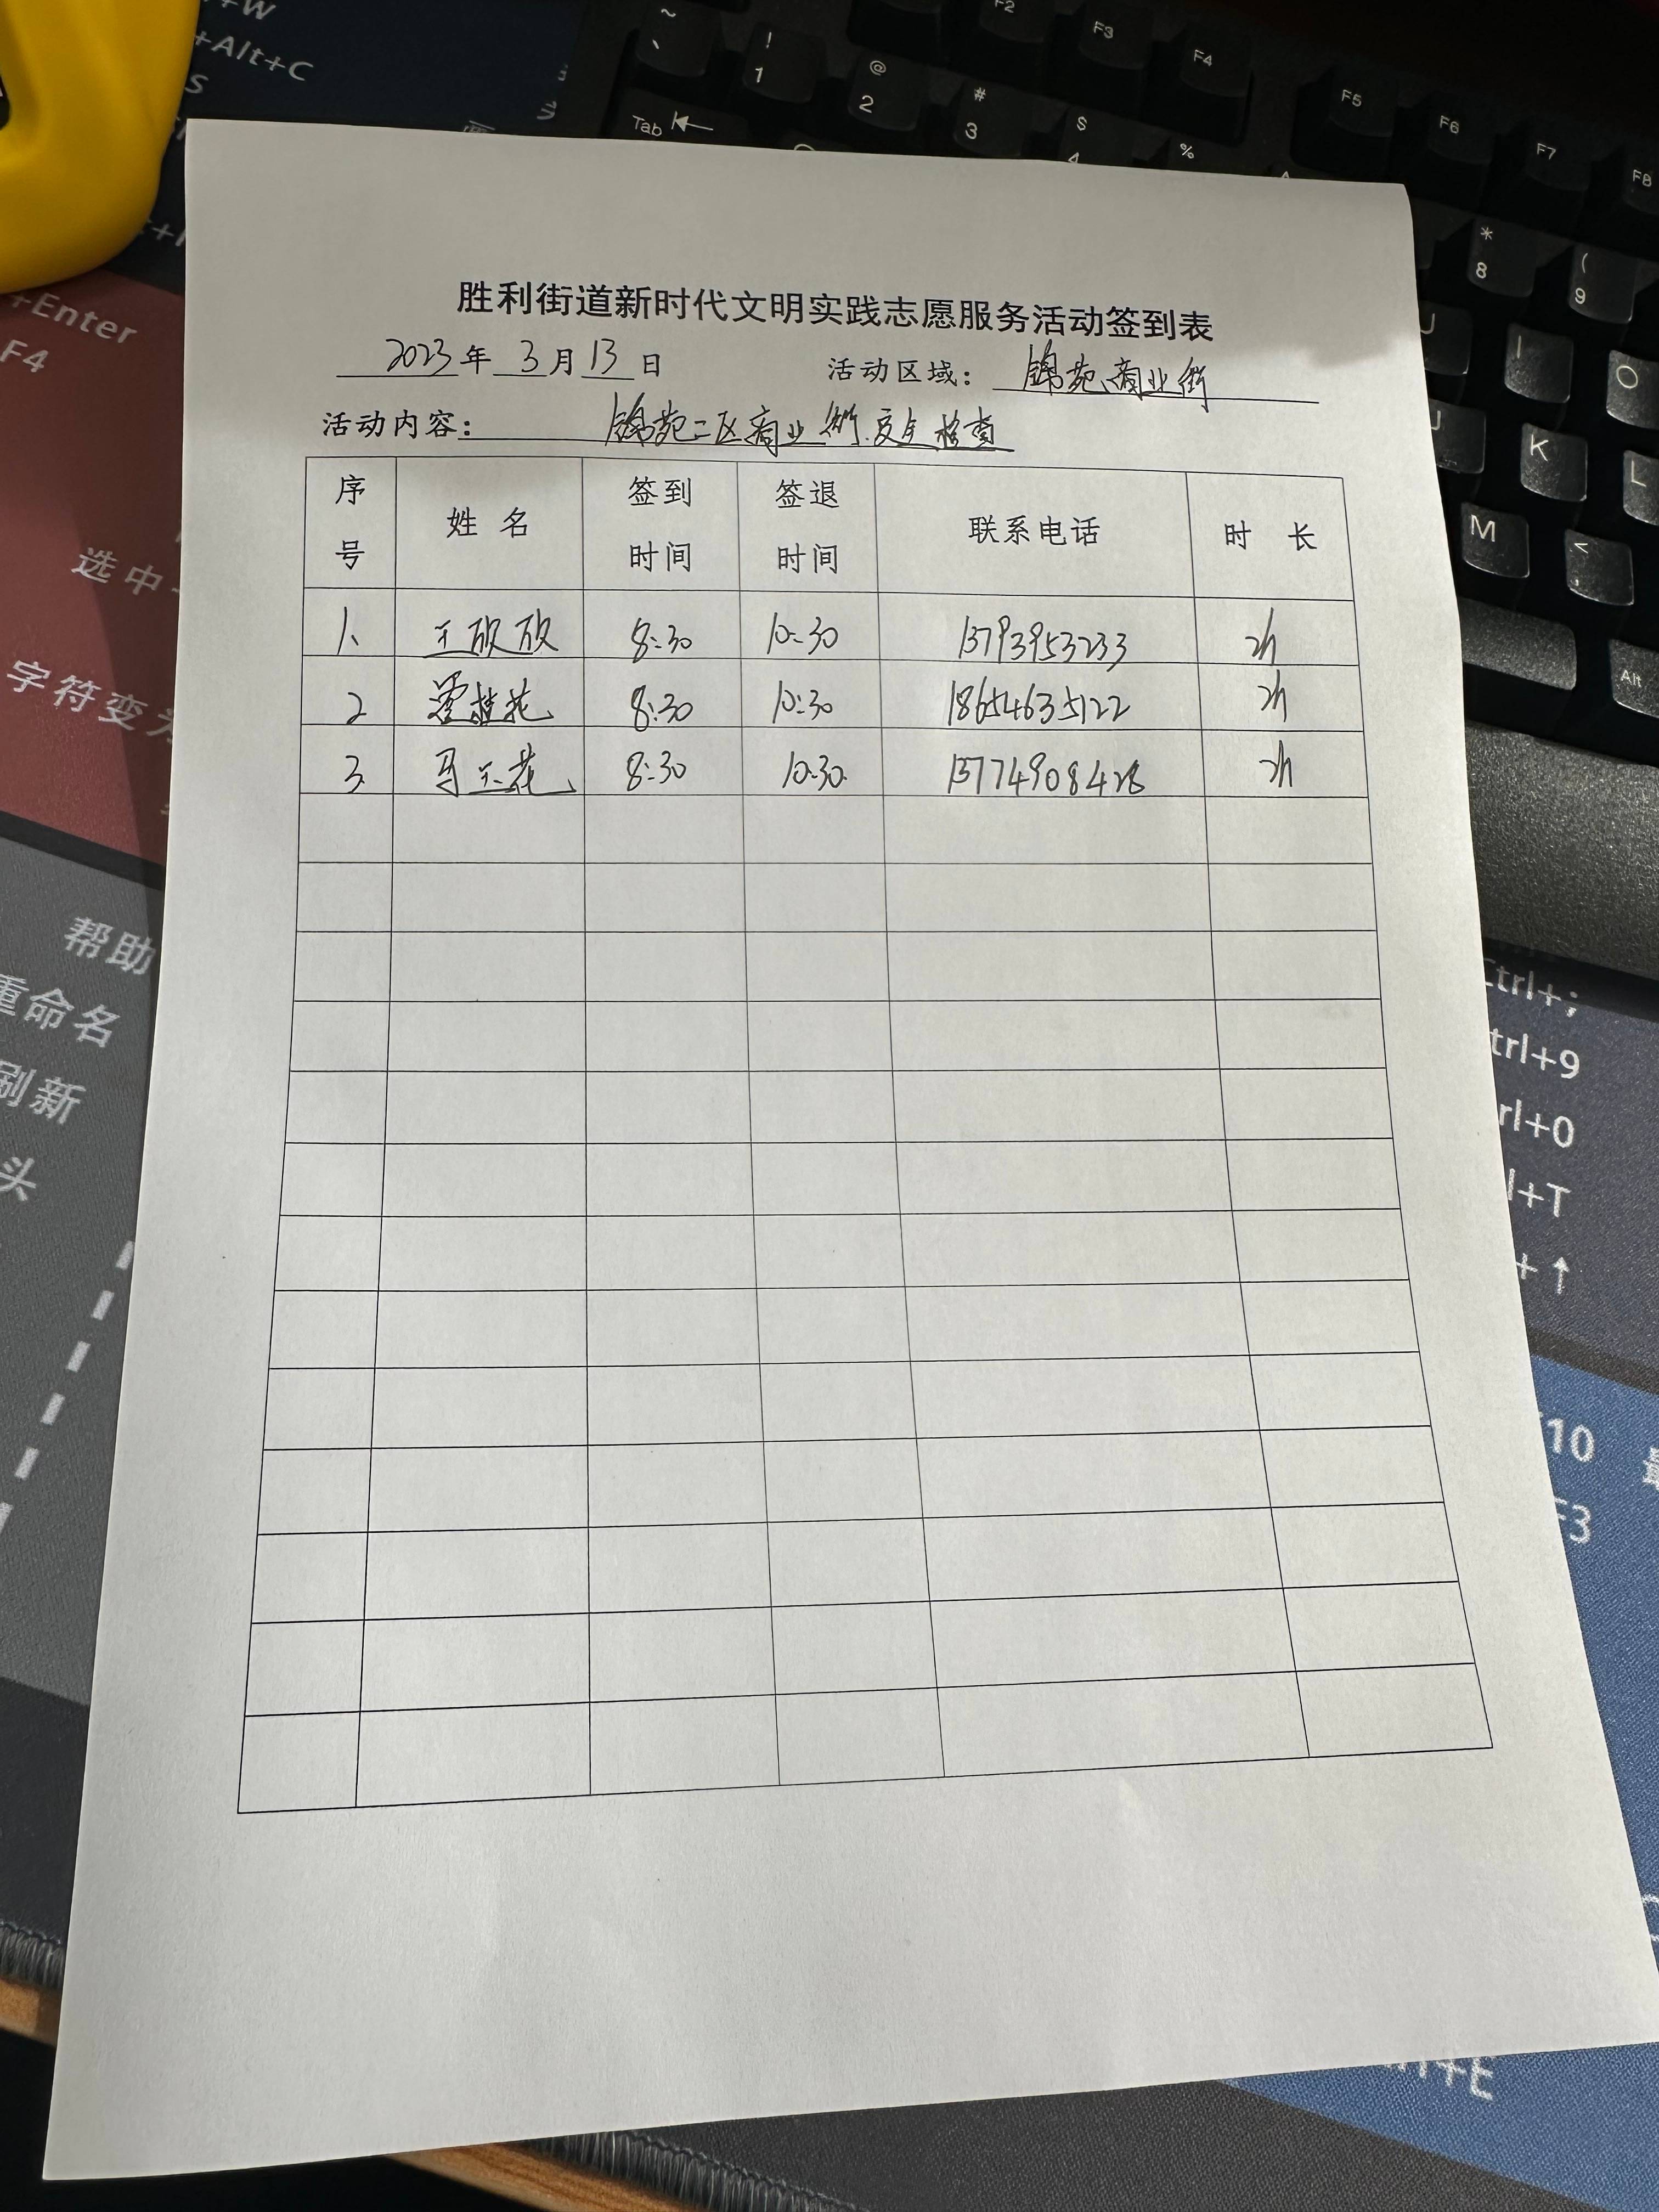 +W
+Alt+C
S
~
、
!
1
@
2
#
3
$
4
%
F2
F3
F4
F5
F6
F7
F8
Tab
*
8
(
9
I
O
J
K
L
M
<
,
Alt
+Enter
F4
选中
字符变为
帮助
重命名
刷新
头
胜利街道新时代文明实践志愿服务活动签到表
2023年 3月13日 活动区域: 锦苑商业街
活动内容: 锦苑二区商业街安全检查
序号 姓 名 签到时间 签退时间 联系电话 时 长
1、 王欣欣 8:30 10:30 13793953233 2h
2 桂花 8:30 10:30 18654635122 2h
3 马玉花 8:30 10:30 13774908428 2h
Ctrl+;
trl+9
rl+0
l+T
+↑
10
F3
+E